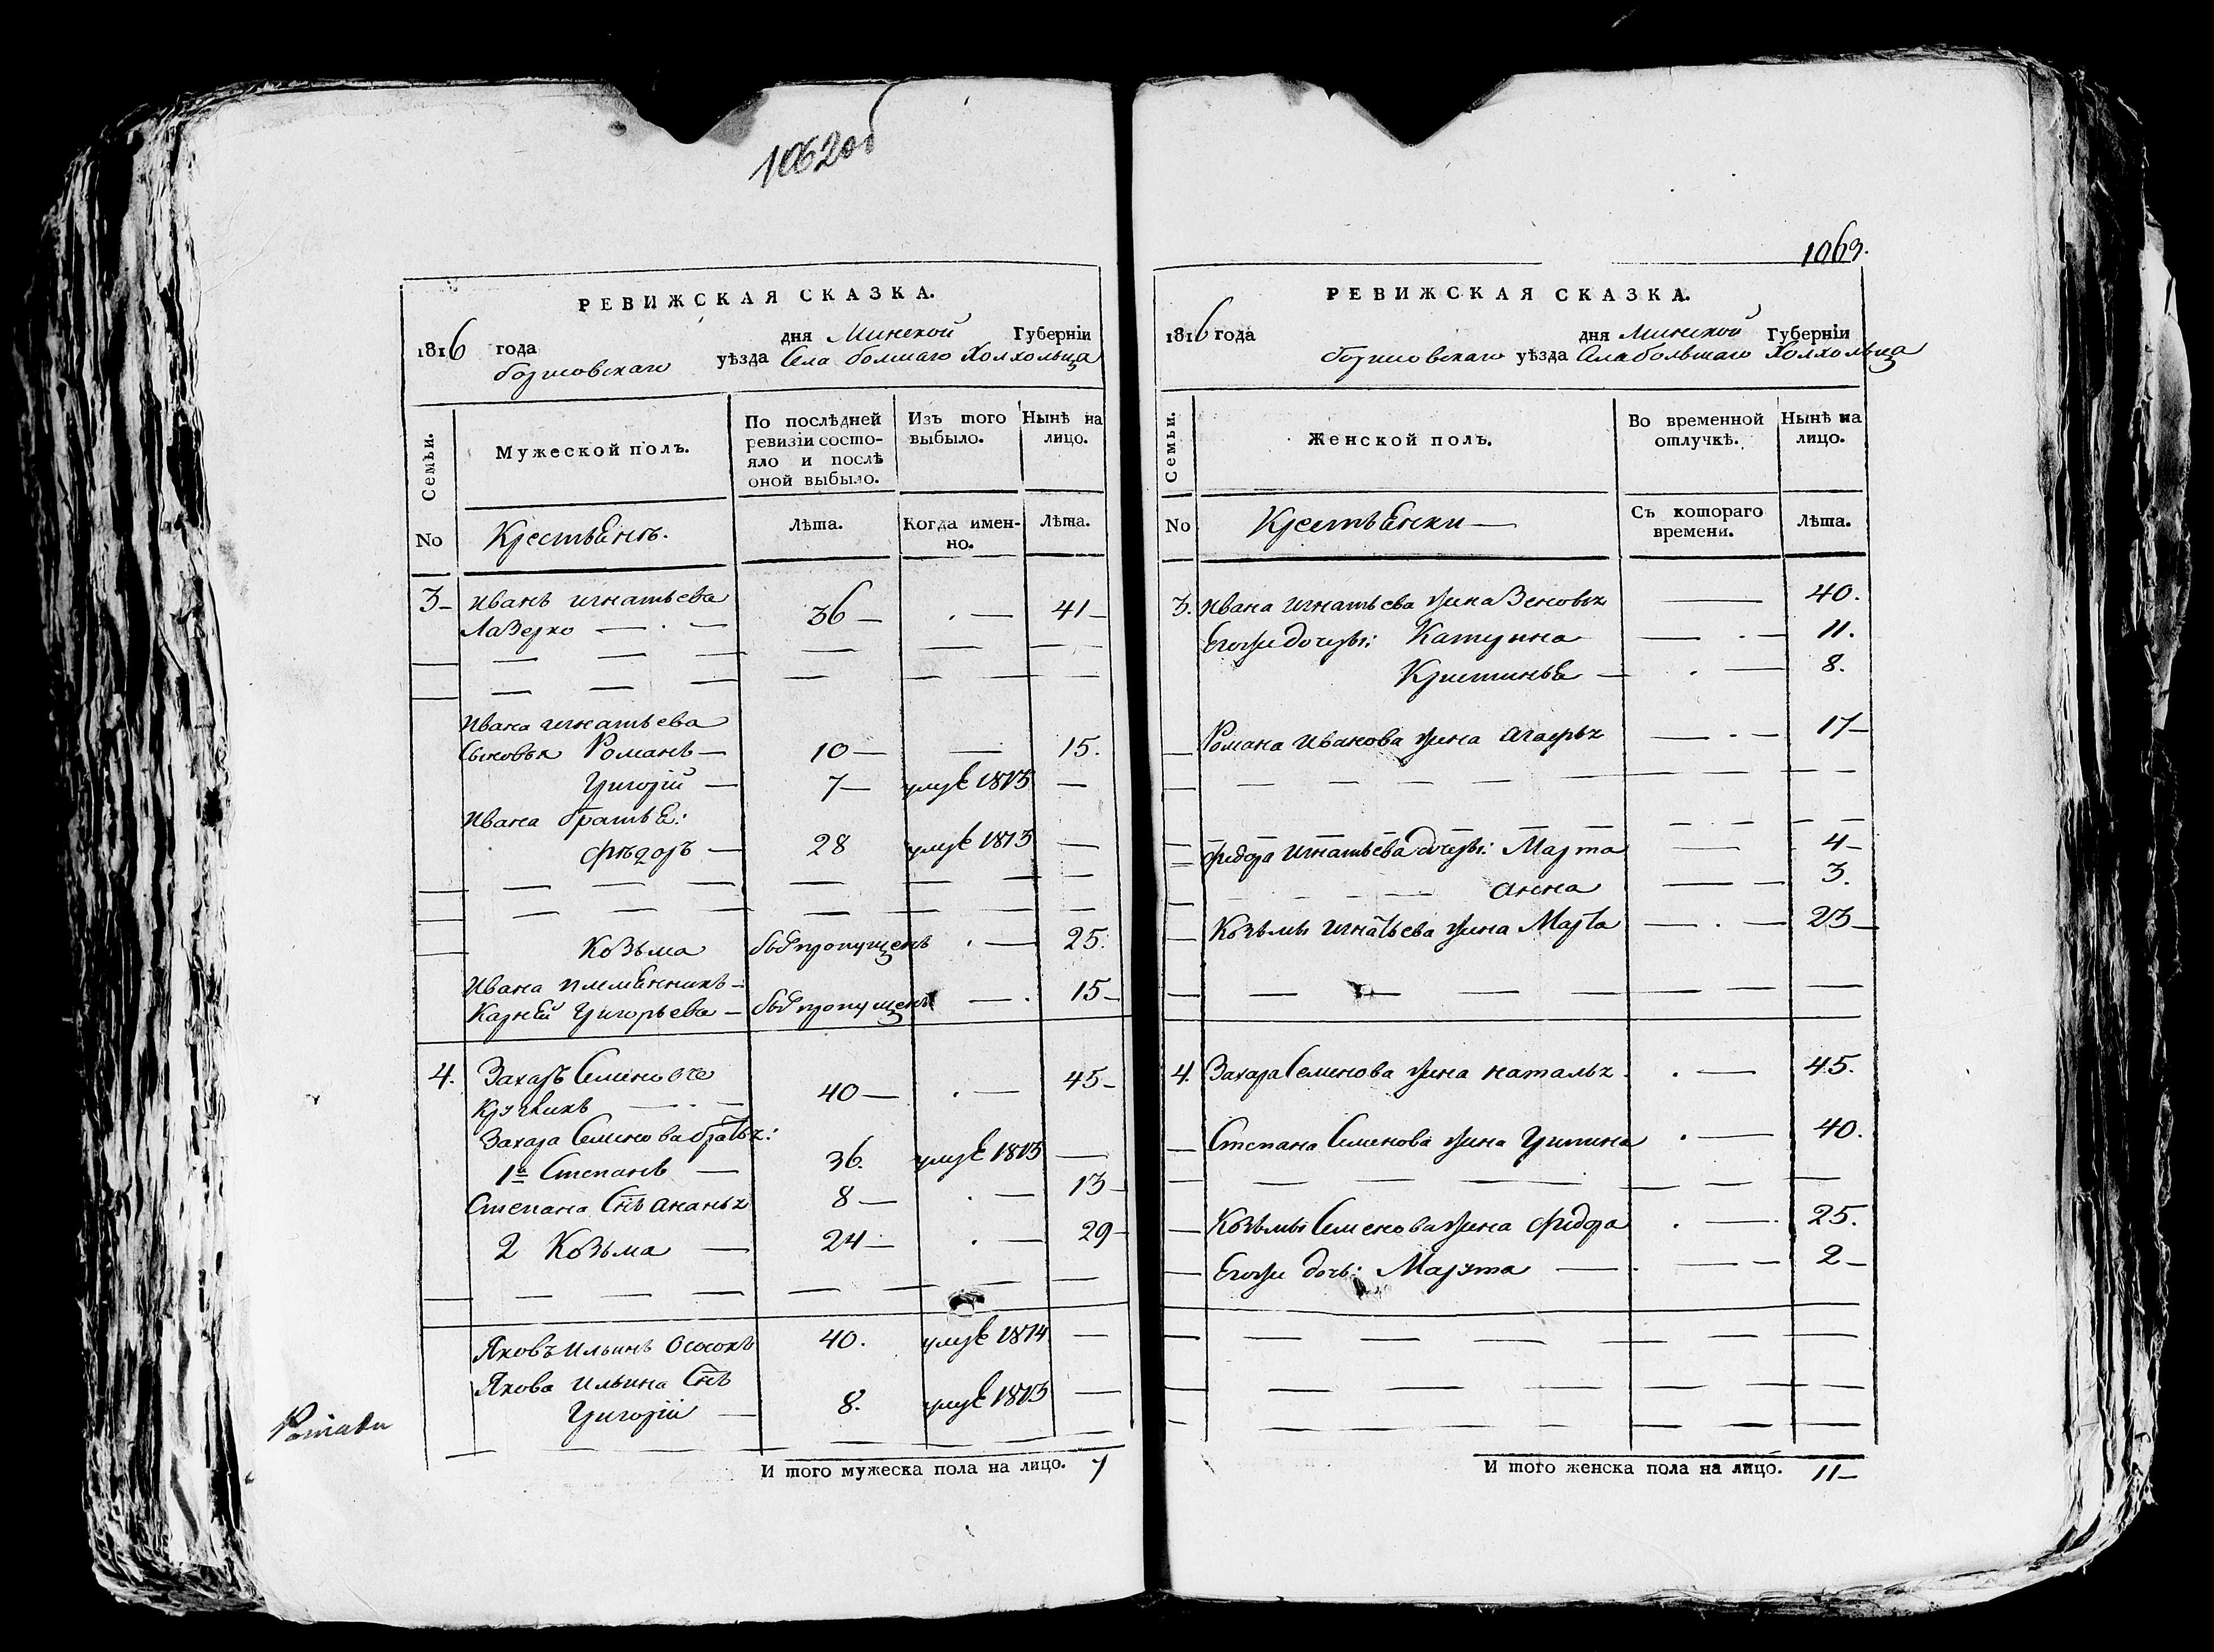 1062об
РЕВИЖСКАЯ СКАЗКА.
1816 года дня Минской Губерніи
борисовскаго уѣзда Села болшаго Холхольца
Семьи. Мужеской полъ. По послѣдней ревизіи состояло и послѣ оной выбыло. Изъ того выбыло. Нынѣ на лицо.
No Крестьянъ. Лѣта. Когда именно. Лѣта.
3 Иванъ игнатьева
Лазерко 36 — 41
Ивана игнатьева
Сыновья Романъ 10 — 15.
Григорій 7 — умре 1813 —
Ивана братья:
Фѣдоръ 28 умре 1813 —
Козьма был пропущенъ — 25.
Ивана племянникъ
Карней Григорьева был пропущенъ — 15
4. Захаръ Семенов
40 — 45
Захара Семенова братья:
1й Степанъ 36. умре 1813 —
Степана Снъ ананья 8 — 13
2 Козьма 24 — 29
Яковъ Ильинъ Ососокъ 40. умре 1814 —
Якова ильина Снъ
Григорій 8. умре 1813 —
И того мужеска пола на лицо. 7
1063.
РЕВИЖСКАЯ СКАЗКА.
1816 года дня Минской Губерніи
борисовскаго уѣзда Села большаго Холхольца
Семьи. Женской полъ. Во временной отлучкѣ. Нынѣ на лицо.
No Крестьянки — Съ котораго времени. Лѣта.
3. Ивана игнатьева жена Зеновья — 40.
Егоже дочери: Катерина — 11.
Кристинья — 8.
Романа Иванова жена агафья — 17
Федора Игнатьева дочери: Марта — 4
анна — 3.
Козьмы игнатьева жена Марта — 23
4. Захара Семенова жена наталья — 45.
Степана Семенова жена Грипина — 40.
Козьмы Семенова жена Федора — 25.
Егоже дочь: Марута — 2
И того женска пола на лицо. 11